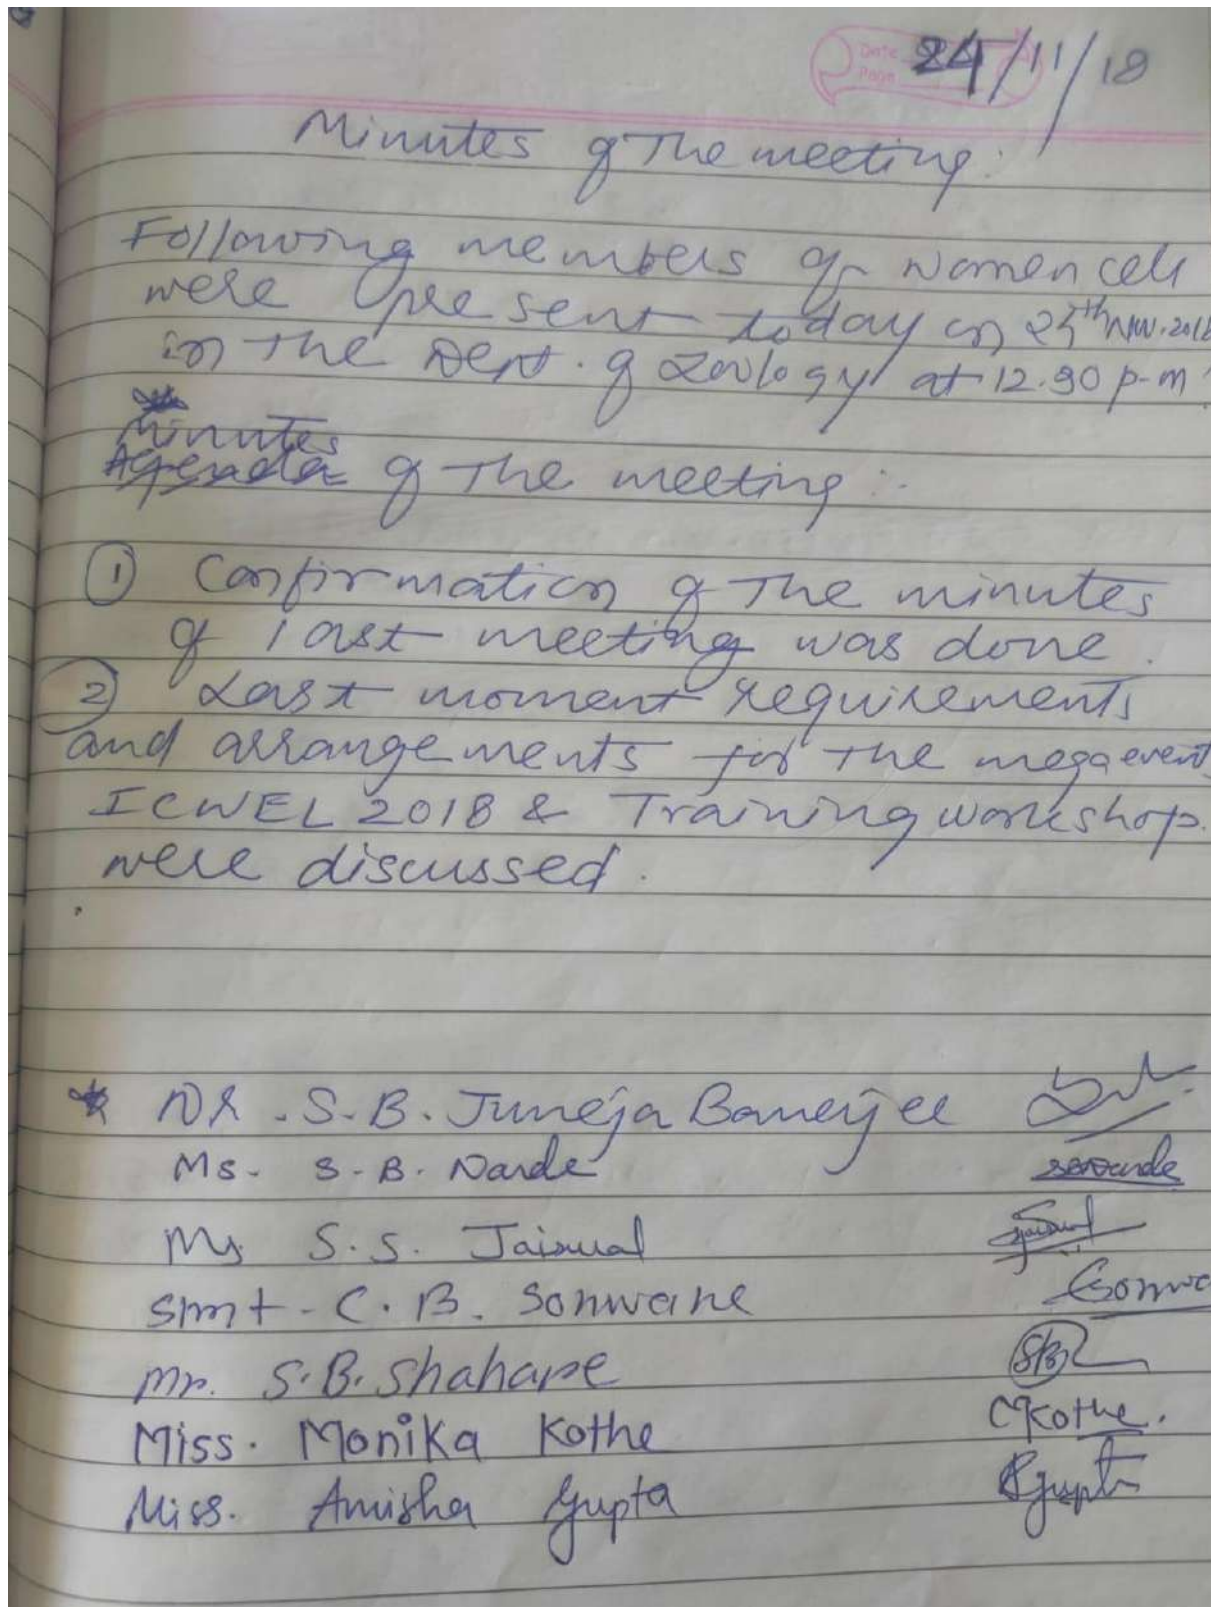 Date
Page
24/11/18
Minutes of The meeting:
Following members of women cell
were present today on 25th Nov. 2018
in the Dept. of Zoology at 12.30 p.m.
Minutes
Agenda of The meeting:-
1 Confirmation of The minutes
of last meeting was done.
2 Last moment requirements
and arrangements for the mega event
ICWEL 2018 & Training workshop.
were discussed.
* Dr. S.B. Juneja Banerjee
Ms. S.B. Narde
Ms S.S. Jaiswal
Smt. C.B. Sonwane
Mr. S.B. Shahare
Miss. Monika Kothe MKothe.
Miss. Amisha Gupta Agupta